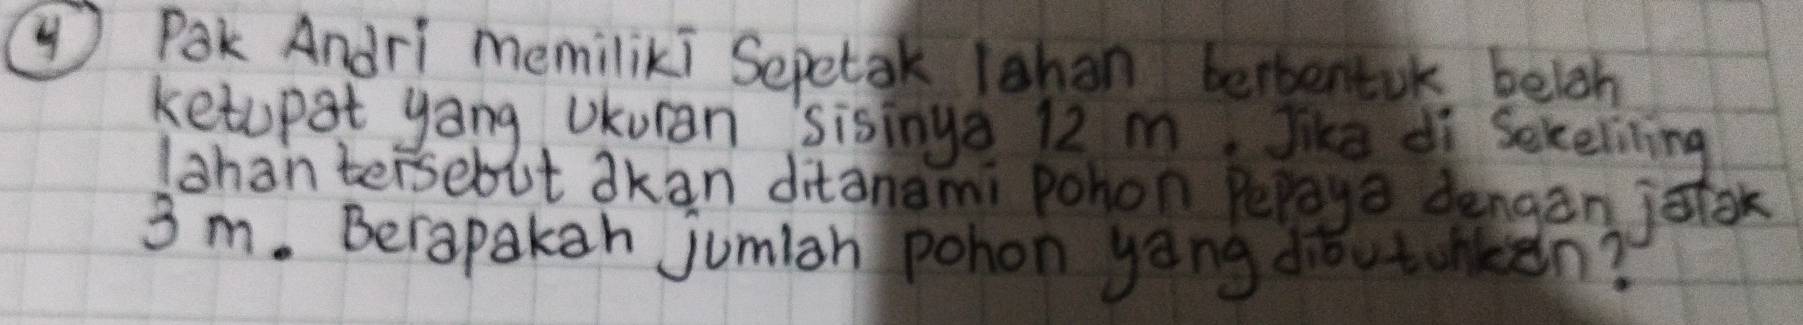 4 Pak Andri memiliki Sepetak lahan berbentuk belah
ketupat yang ukuran sisinya 12 m. Jika di Sekeliling
lahan tersebut akan ditanami pohon pepaya dengan jarak
3 m. Berapakah jumlah pohon yang dibutuhkan?